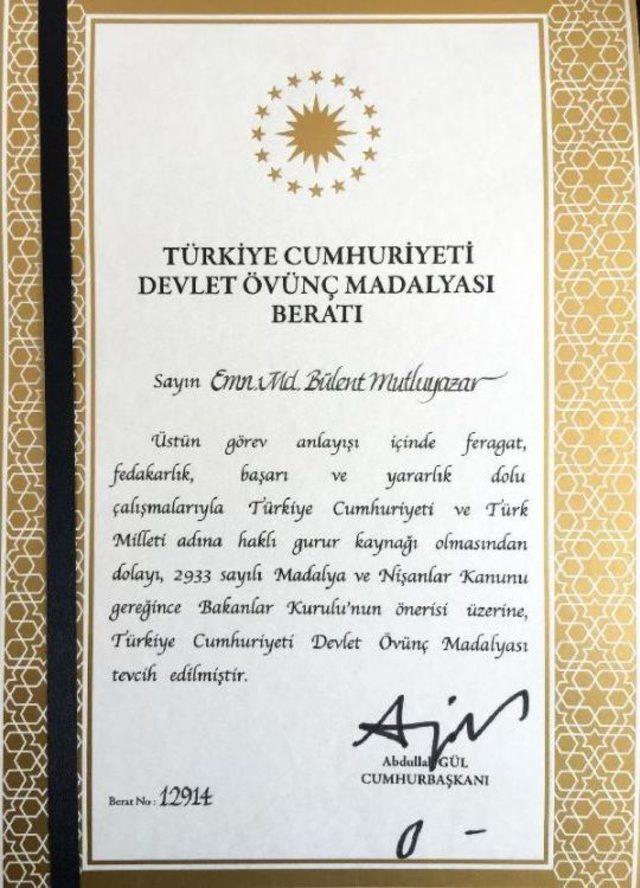 TÜRKİYE CUMHURİYETİ
DEVLET ÖVÜNÇ MADALYASI
BERATI
Sayın Emn. Md. Bülent Mutluyazar
Üstün görev anlayışı içinde feragat,
fedakarlık, başarı ve yararlık dolu
çalışmalarıyla Türkiye Cumhuriyeti ve Türk
Milleti adına haklı gurur kaynağı olmasından
dolayı, 2933 sayılı Madalya ve Nişanlar Kanunu
gereğince Bakanlar Kurulu'nun önerisi üzerine,
Türkiye Cumhuriyeti Devlet Övünç Madalyası
tevcih edilmiştir.
Abdullah GÜL
CUMHURBAŞKANI
Berat No : 12914